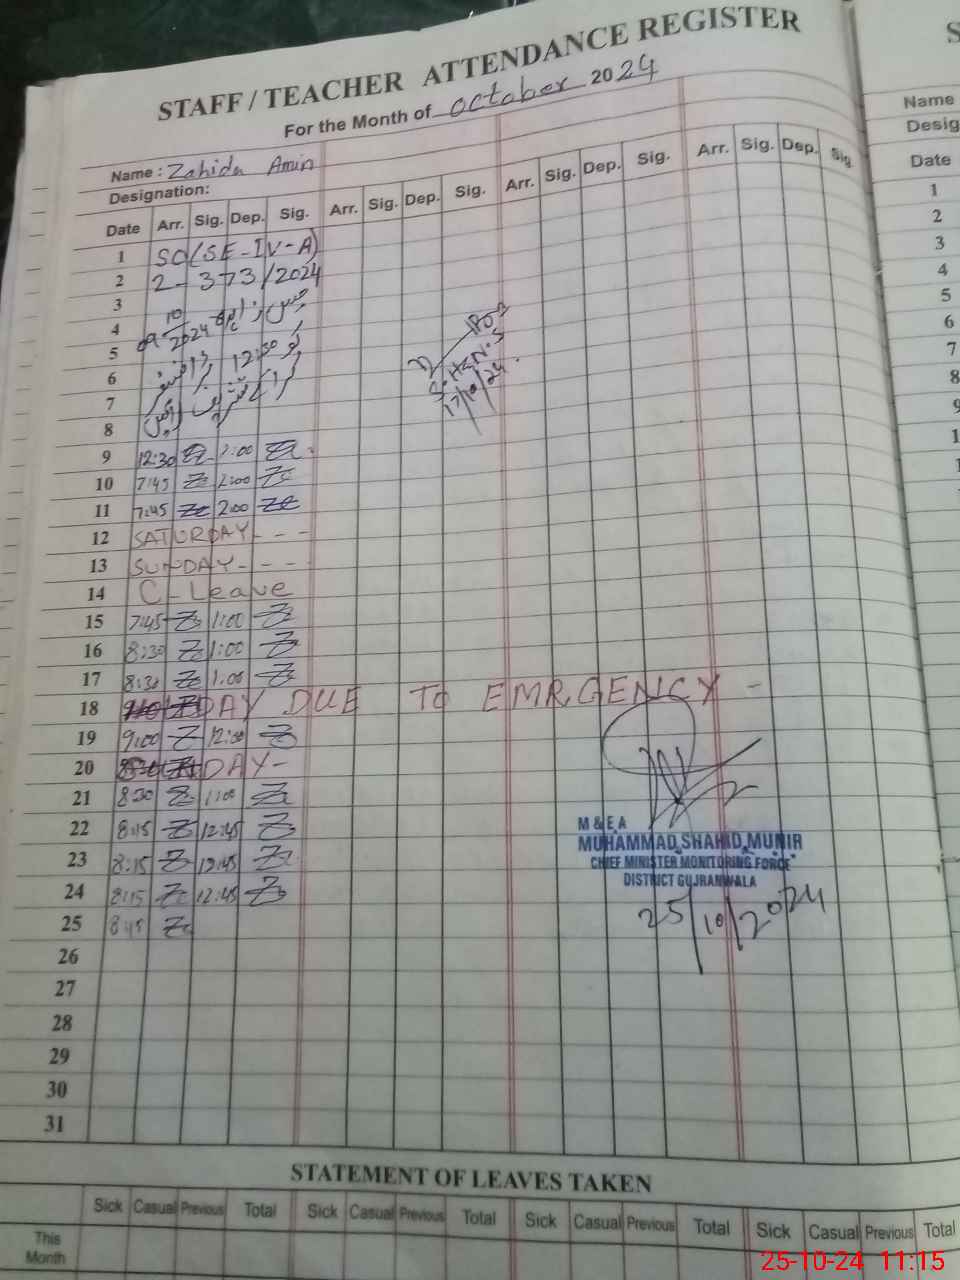 STAFF / TEACHER ATTENDANCE REGISTER
For the Month of October 2024
Name : Zahida Amin
Designation:
Date Arr. Sig. Dep. Sig. Arr. Sig. Dep. Sig. Arr. Sig. Dep. Sig. Arr. Sig. Dep. Sig.
1 SO(SE-IV-A)
2 2-373/2024
3
4 09 10 2024
5
6 12:30
7
8
17/10/24
9 12:30 2:00
10 7:45 2:00
11 7:45 2:00
12 SATURDAY - - -
13 SUNDAY - - -
14 C-Leave
15 7:45 1:00
16 8:30 1:00
17 8:30 1:00
18 HOLIDAY DUE TO EMRGENCY -
19 9:00 12:00
20 DAY -
21 8:30 1:00
22 8:15 12:45
23 8:15 12:45
24 8:15 12:45
25 8:45
26
27
28
29
30
31
M & E A
MUHAMMAD SHAHID MUNIR
CHIEF MINISTER MONITORING FORCE
DISTRICT GUJRANWALA
25/10/2024
STATEMENT OF LEAVES TAKEN
Sick Casual Previous Total Sick Casual Previous Total Sick Casual Previous Total Sick Casual Previous Total
This Month
S
Name
Desig
Date
1
2
3
4
5
6
7
8
9
25-10-24 11:15